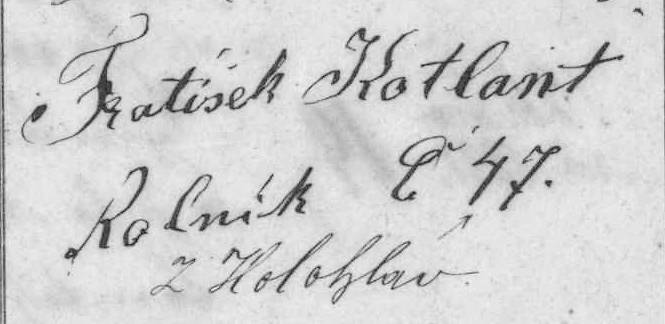 Fratišek Kotlant
Rolník Č 47.
z Holohlav